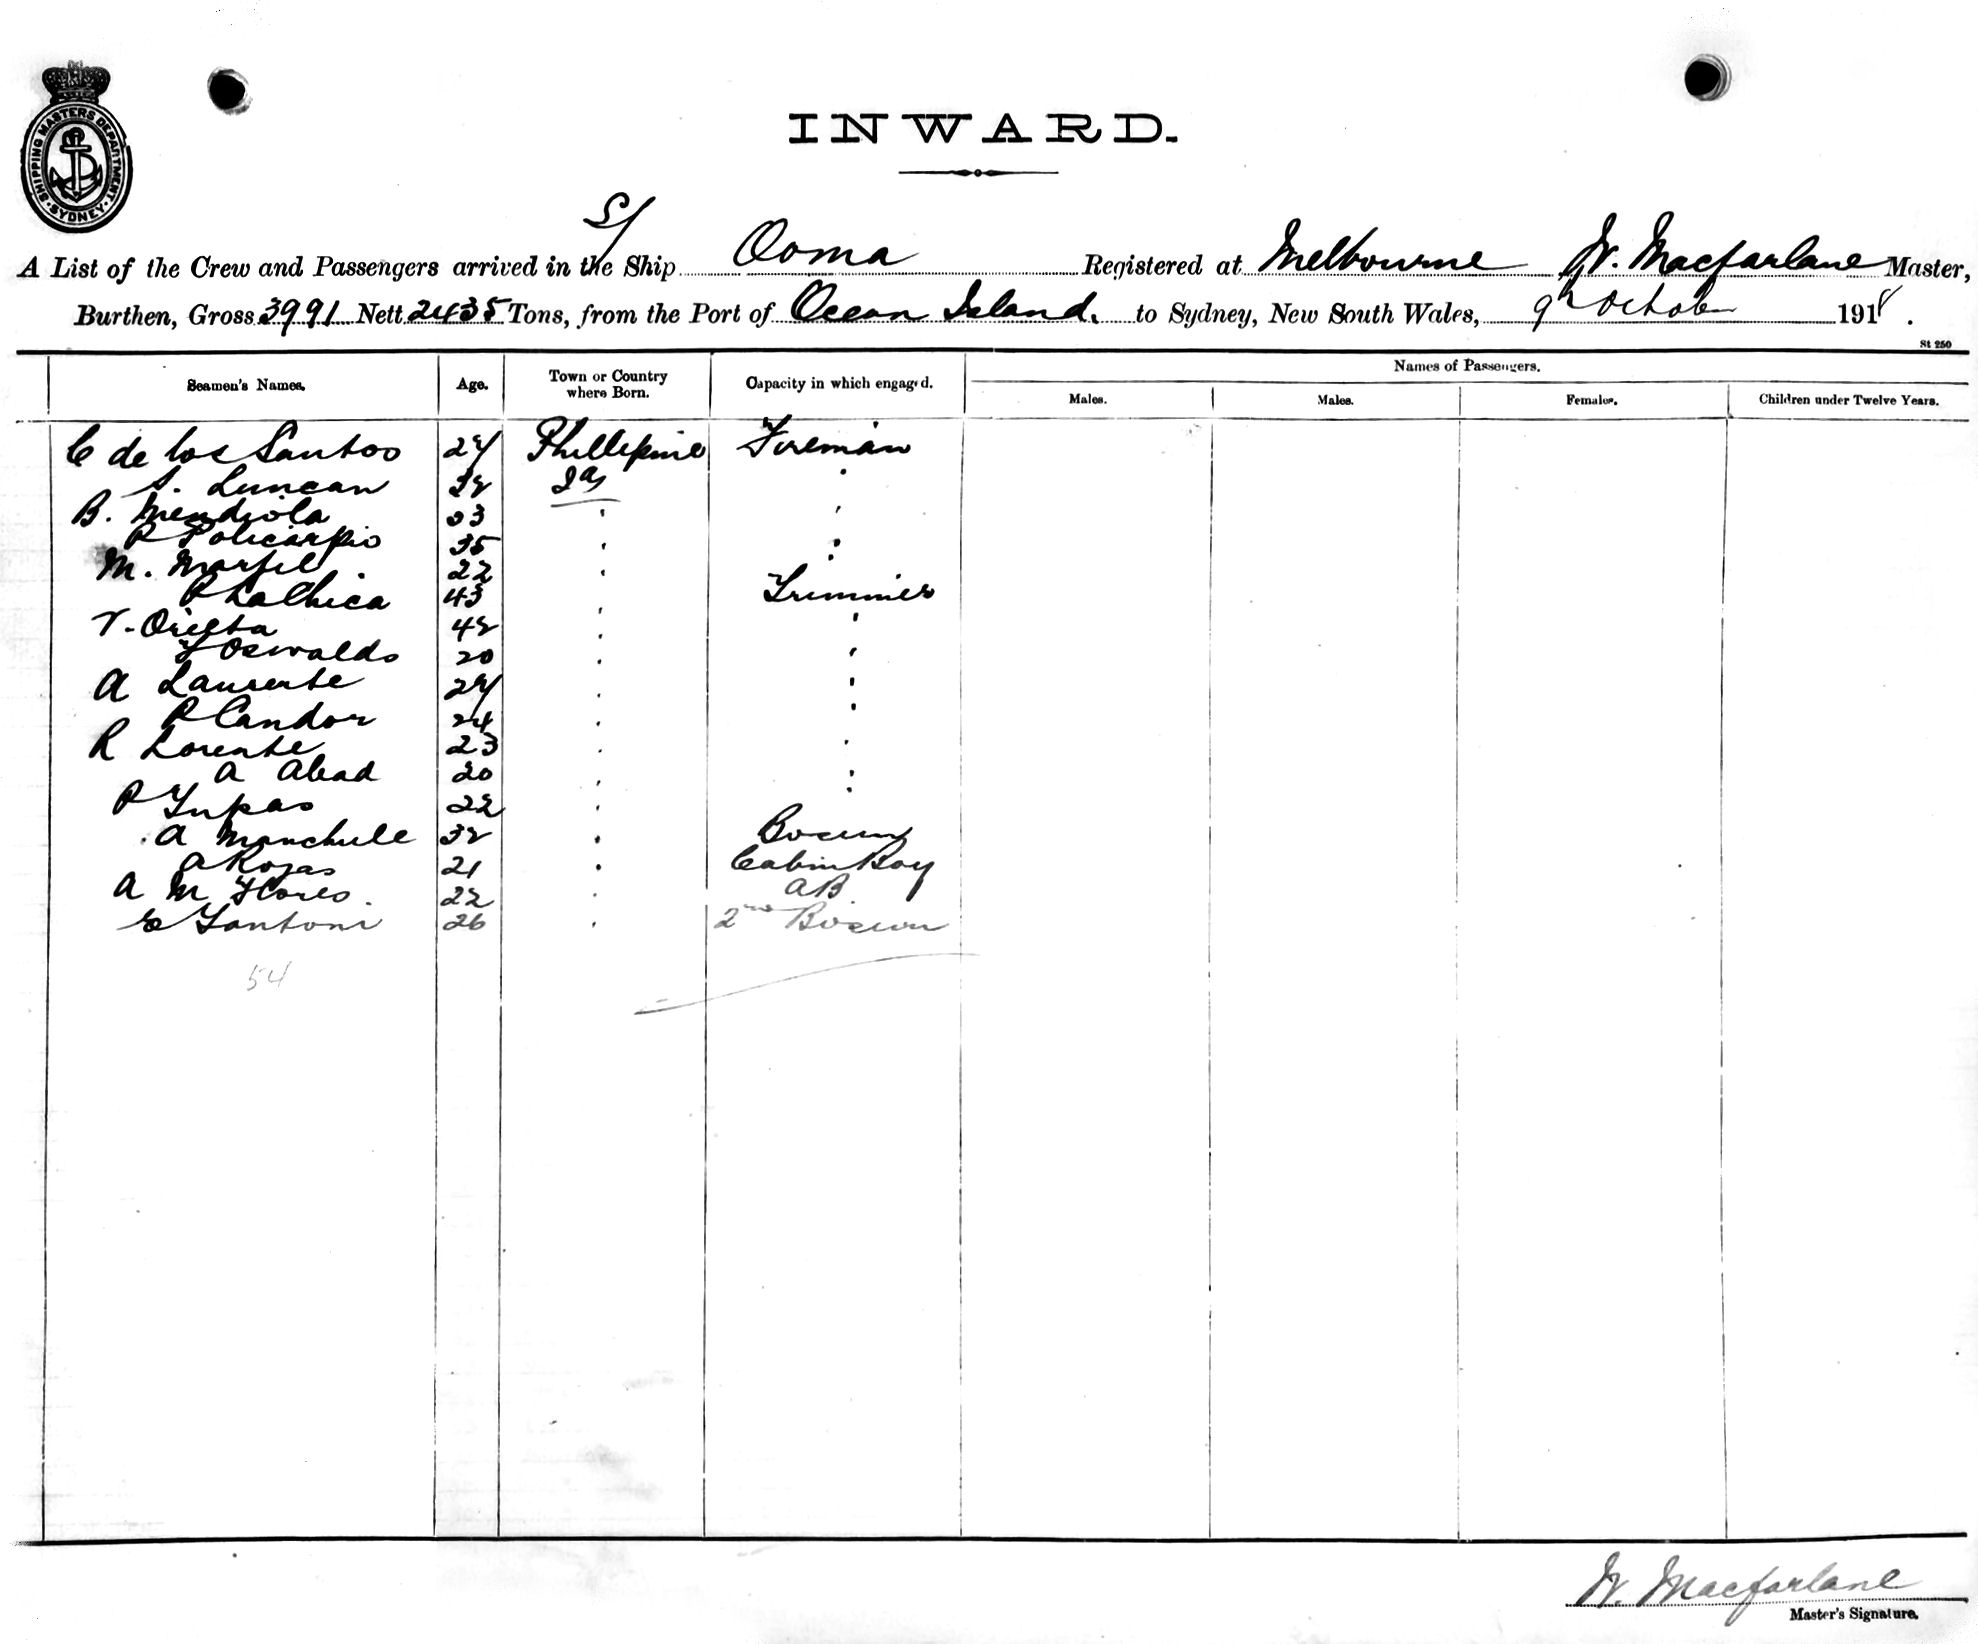 SHIPPING MASTERS DEPARTMENT. SYDNEY.
INWARD.
S/
A List of the Crew and Passengers arrived in the Ship Ooma Registered at Melbourne W. Macfarlane Master,
Burthen, Gross 3991 Nett 2435 Tons, from the Port of Ocean Island. to Sydney, New South Wales, 9th October 1918.
St 250
Seamen's Names. Age. Town or Country where Born. Capacity in which engaged. Names of Passengers.
Males. Males. Females. Children under Twelve Years.
C de los Santos 24 Phillepine Fireman
S. Luncan 32 Is "
B. Mendiola 33 " "
P Policarpio 35 " "
M. Marfil 22 " "
P LaChica 43 " Trimmer
V. Orilla 42 " "
F Oswaldo 20 " "
A Laurente 24 " "
P Candor 24 " "
R Lorente 23 " "
A Abad 20 " "
P Tupas 22 " "
A Manchule 32 " Bosun
A Rojas 21 " Cabin Boy
A M Flores 22 " AB
26 " 2nd Bosun
54
W. Macfarlane
Master's Signature.